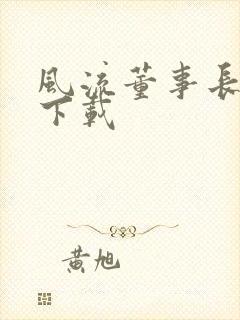 風流董事長
下載
黃旭